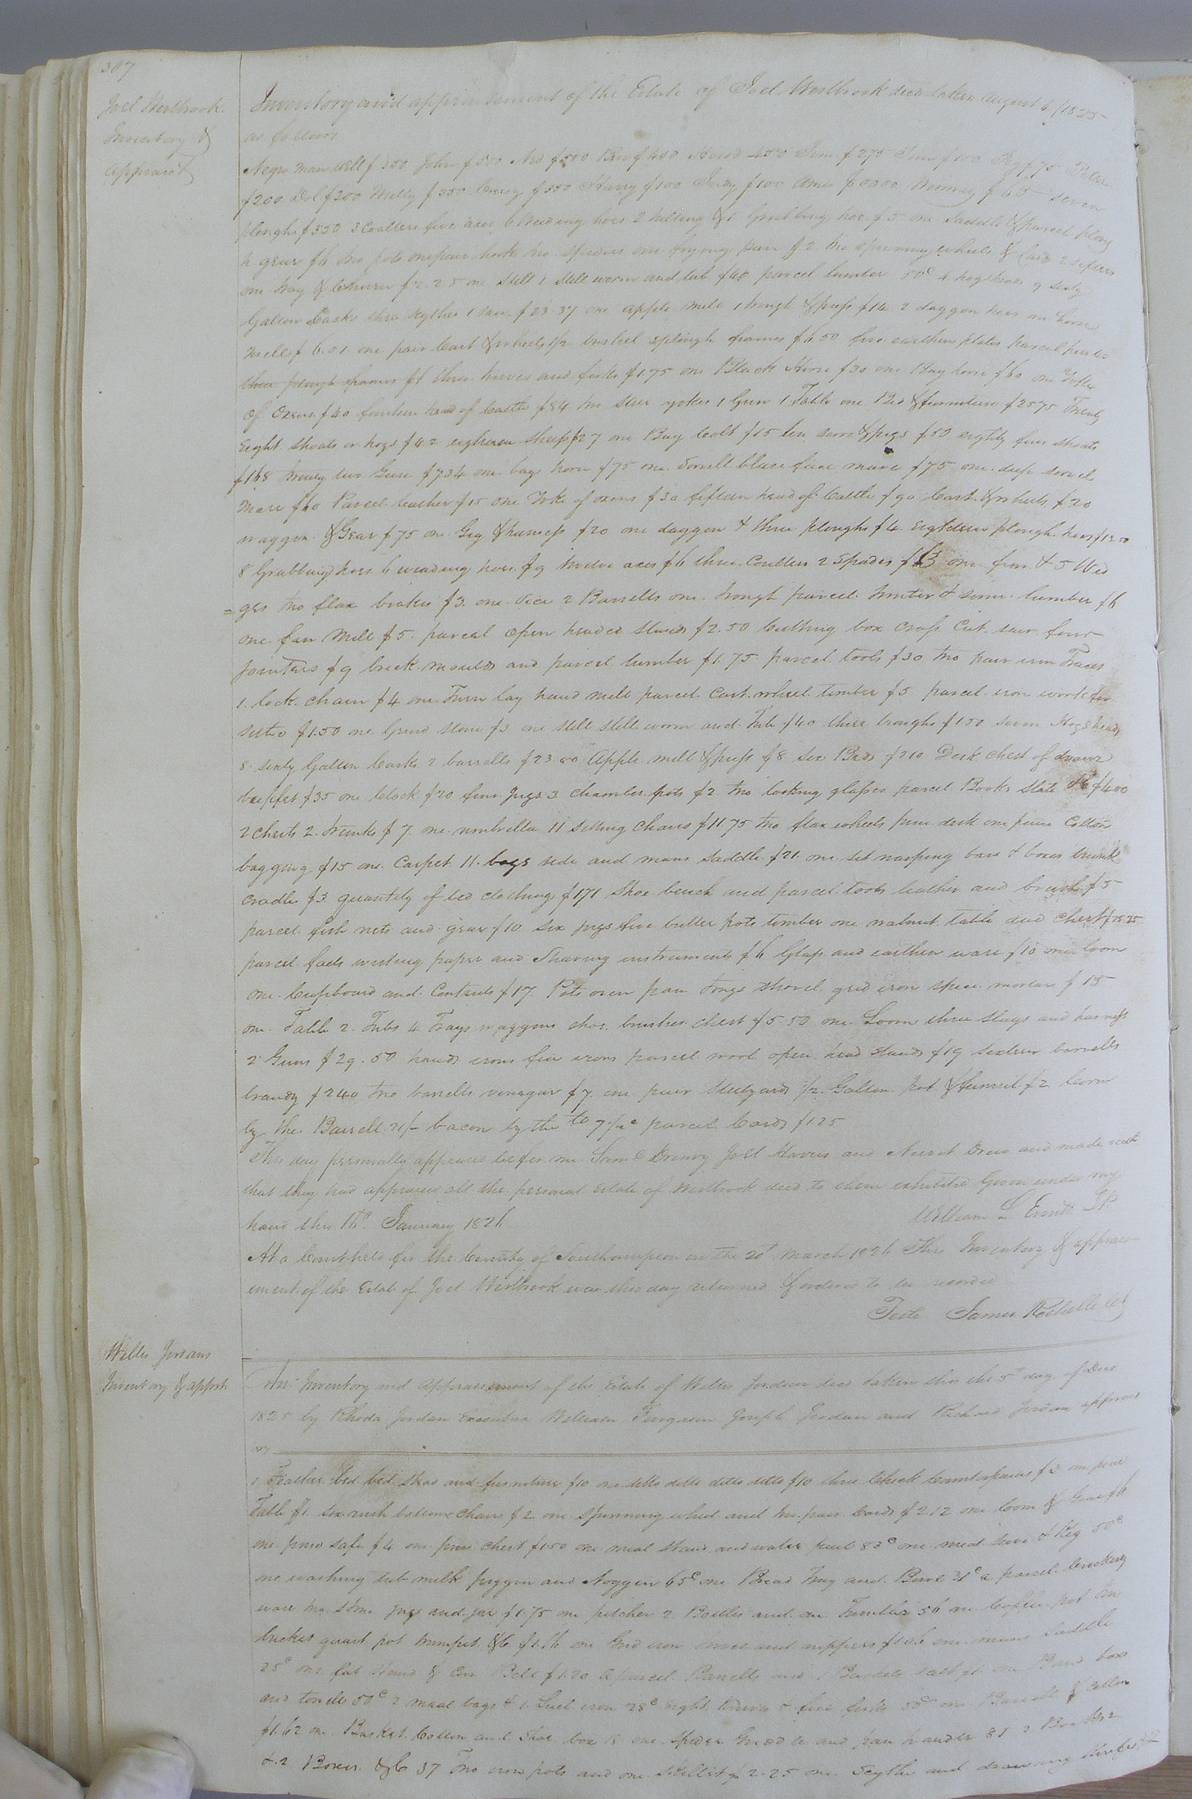 307
Joel Westbrook
Inventory &
appraist
Inventory and appraisement of the Estate of Joel Westbrook decd taken August 6 /1825
as follows
Negro man Will $350 John $500 Ned $500 Ben $400 450 $275 $75
$200 $200 Milly $350 $350 Harry $100 $100 Amos Mooney $65 seven
ploughs $3 50 3 Coulters five axes 6 weeding hoes 2 hilling & 1 Grubbing hoe $5 one Saddle & parcel plou
h gear $6 two pots one pair hook two spiders one frying pan $2 two spinning wheels & Cards 2 sifters
one tray & $2.25 one Still 1 still worm and tub $40 parcel lumber 50c 4 hogsheads 9 sixty
Gallon Casks three scythes 1 saw $23.37 one apple mill 1 trough & press $14 2 daggon hoes an
mills $6.01 one pair Cart & wheels 1/2 bushel 2 plough frames $6.50 five earthen plates parcel
three plough frames $1 three knives and forks $1.75 one Black Horse $30 one Bay horse $60 one Yoke
of Oxens $40 fourteen head of Cattle $84 two steer yokes 1 Gun 1 Table one Bed & furniture $25 75 Twenty
Eight shoats or hogs $42 eighteen sheep $27 one Bay Coalt $15 ten sows & pigs $50 eighty four shoats
$168 twenty two Geese $7.34 one bay horse $75 one Sorrell blase face mare $75 one deep sorrel
Mare $60 Parcel leather $15 one Yoke of oxens $30 fifteen head of Cattle $90 Cart & wheels $20
waggon & Gear $75 one Gig & harness $20 one daggon & three ploughs $4 eighteen plough hoes $13.50
8 Grubbing hoes 6 weading hoes $9 twelve axes $6 three Coulters 2 spades $3 one & 5 Wed
= ges two flax brakes $3 one vice 2 Barrells one trough parcel and some lumber $6
one fan Mill $5 parcel open headed stands $2.50 Cutting box Cross Cut saw four
Jointers $9 brick moulds and parcel lumber $1.75 parcel tools $30 two pair iron Traces
1 lock chain $4 one Turn lay hand mill parcel Cart wheel timber $5 parcel iron work for
settee $1.50 one Grind stone $3 one still still worm and Tub $40 three troughs $1.50 seven Hogsheads
8 sixty Gallon Casks 2 barrells $23 80 Apple mill & press $8 six Beds $210 Desk chest of drawers
beaufet $35 one Clock $20 five Jugs 3 chamber pots $2 two looking glasses parcel Books slate &c $4.00
2 chests 2 trunks $7 one umbrella 11 sitting chairs $11 75 two flax wheels pine desk one piece Cotton
bagging $15 one Carpet 11 bags side and mans saddle $21 one set warping bars & boxes trunk
Cradle $3 quantity of bed clothing $171 Shoe bench and parcel tools leather and brush $5
parcel fish nets and gear $10 six jugs five butter pots timber one walnut table and chest $18.25
parcel writing paper and Shaving instruments $6 Glass and earthen ware $10 one loom
one Cupboard and Contents $17 Pots oven pan Tongs shovel grid iron spice mortar $15
one Table 2 Tubs 4 Trays waggons shoe brushes chest $5 50 one Loom three slays and harness
2 Guns $29.50 hand irons fire irons parcel wool open head stands $19 sixteen barrells
brandy $240 two barrells vinegar $7 one pair Steelyards 1/2 Gallon pot & funnel $2 Corn
by the Barrell 21/- bacon by the lb 7 1/2c parcel Cards $1.25
This day personally appeared before me Saml Drewry Joel Harris and Newit Drew and made oath
that they had appraised all the personal Estate of Westbrook decd to them exhibited Given under my
hand this 16th January 1826 William L Everitt JP
At a Court held for the County of Southampton on the 20th March 1826 This Inventory & appraise
ment of the Estate of Joel Westbrook was this day returned & ordered to be recorded
Teste James Rochelle clk
Willis Jordans
Inventory & appst
An Inventory and Appraisement of the Estate of Willis Jordan decd taken this the 5th day of Decr
1825 by Rhoda Jordan Executrix William Ferguson Joseph Jordan and Richard Jordan apprais
ers
1 Feather bed bed stead and furniture $10 one ditto ditto ditto ditto $10 three Check Counterpanes $3 one pine
Table $1 six rush bottom Chairs $2 one Spinning wheel and two pair Cards $2.12 one Loom & Gear $6
one pine safe $4 one pine chest $1.50 one meal stand and water pail 83c one meal sieve & Keg 50c
one washing tub milk piggin and Noggin 65c one Bread Tray and Bowl 31c a parcel Crockery
ware two stone jugs and jar $1.75 one pitcher 2 Bottles and one Tumbler 56 one Coffee pot tin
bucket quart pot trumpet &c $1.16 one Grid iron and nippers one mans Saddle
25c one fat stand & $1.20 a parcel Barrells and 1 Baskets salt one Band box
and towels 50c 2 meal bags & 1 flat iron 28c eight knives & five forks 50c one Barrell & Cotton
$1.62 one Basket Cotton and Shoe box one Spider Griddle and pan handle 81 2 Baskets
& 2 Boxes &c 37 Two iron pots and one skillet $2.25 one Scythe and drawing knife